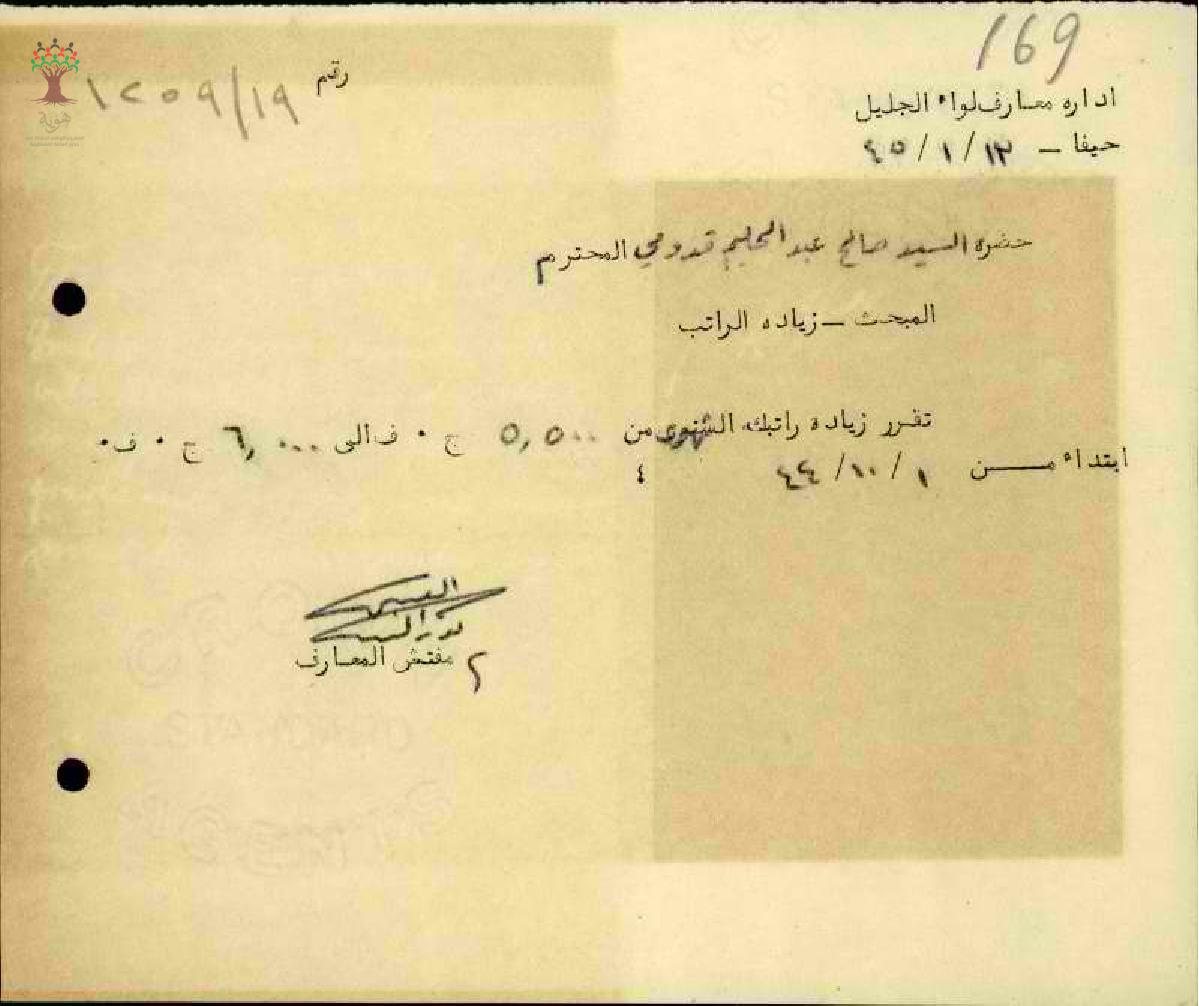 169
رقم ١٢٥٩/١٩
هوية
اداره معارف لواء الجليل
حيفا – ١٢/ ١/ ٤٥
حضرة السيد صالح عبد الحليم قدومي المحترم
المبحث – زياده الراتب
تقرر زياده راتبك الشهري من ٥,٥٠٠ ج ٠ ف الى ٦,٠٠٠ ج ٠ ف٠
ابتداء مـــن ١/ ١٠/ ٤٤
٤
مفتش المعارف